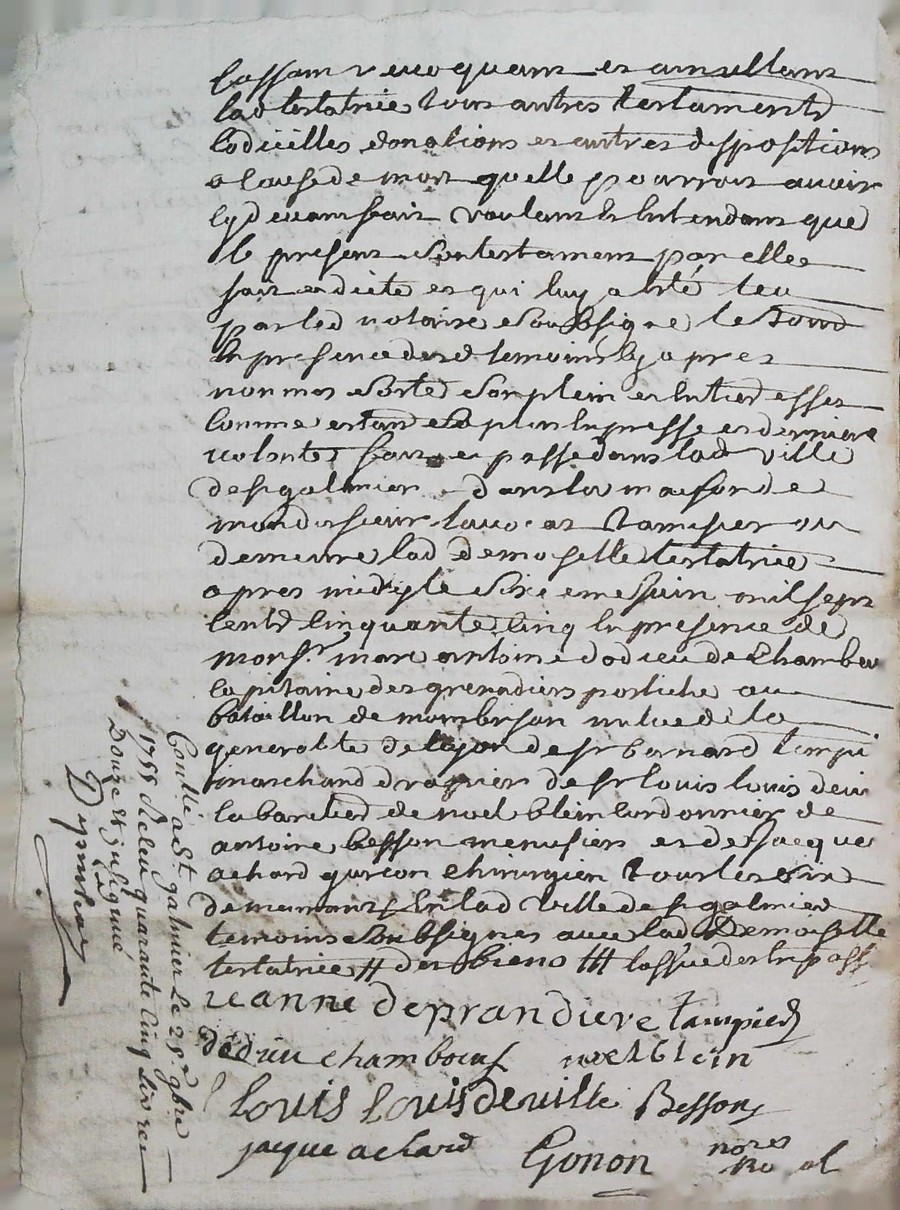 cassant revoquant et annullant
lad testatrice tous autres testaments
codicilles donations et autres dispositions
a cause de mort quelle pourroit avoir
cy devant fait voulant et entendant que
le present son testament par elle
fait et dicté et qui luy a esté leu
par led notaire soubsigné le tout
en presence desd temoins cy apres
nommes sorte son plein et entier effet
comme estant sa plus expresse et derniere
volonté fait et passé dans lad ville
de st galmier dans la maison de
mond sieur tamisier ou
demeure lad demoiselle testatrice
apres midy le juin mil sept
cents cinquante cinq en presence de
monsr. marc antoine dodieu de chambeu
capitaine des grenadiers postiche au
bataillon de montbrison de la
generalite de lyon de sr barnard
marchand drapier de sr louis louis devi
de noel blein cordonnier de
antoine besson menusier et de jacque
achard garcon chirurgien tous
demeurants en lad ville de st galmier
temoins soubsignes avec lad demoiselle
testatrice # des biens ##
jeanne deprandiere tampied
dodieu chamboeuf noel blein
louis louis deville Besson
jacque achard Gonon nores
Ro al
Conllé a St galmier le 25e 9bre
1755 Receu quarante cinq livres
Douze